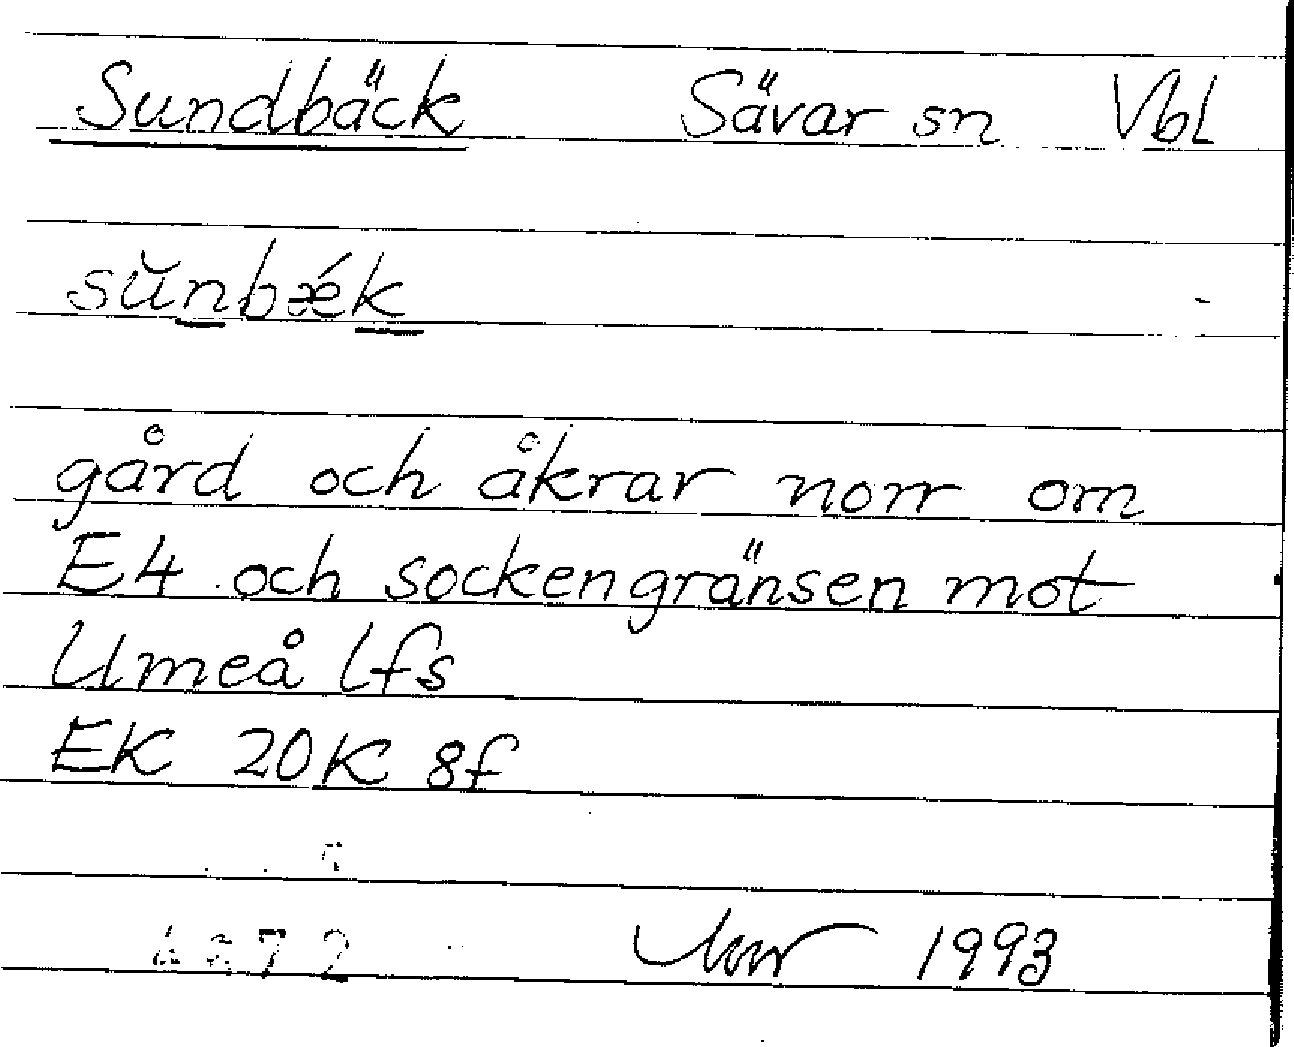 Sundbäck Sävar sn Vbl
sŭnbǽk
gård och åkrar norr om
E4 och sockengränsen mot
Umeå lfs
EK 20K 8f
1993